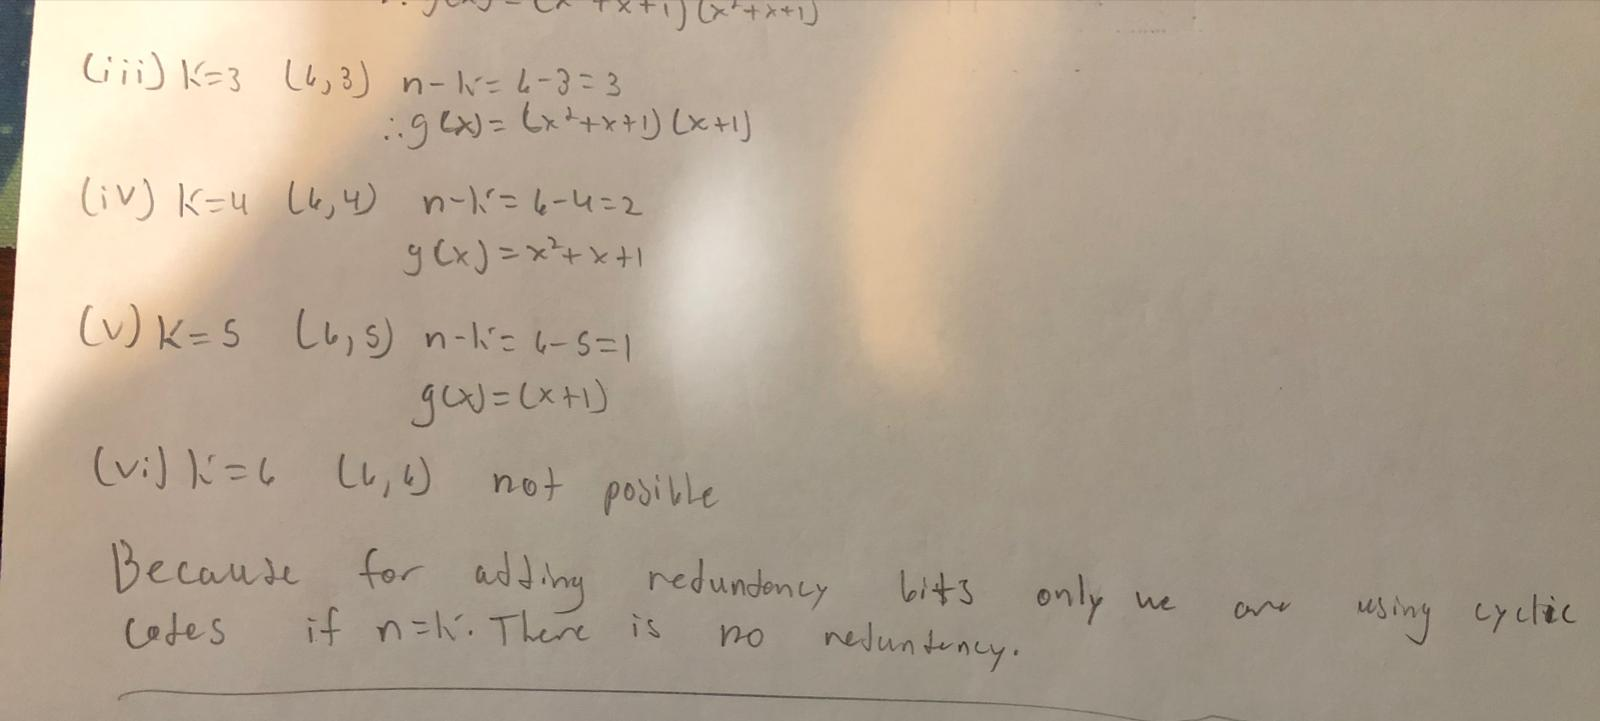 (iii) K=3 (6,3) n-k=6-3=3
∴g(x)=(x²+x+1)(x+1)
(iv) K=4 (6,4) n-k=6-4=2
g(x)=x²+x+1
(v) K=5 (6,5) n-k=6-5=1
g(x)=(x+1)
(vi) k=6 (6,6) not posible
Because for adding redundency bits only we are using cyclic
codes if n=k. There is no redundency.